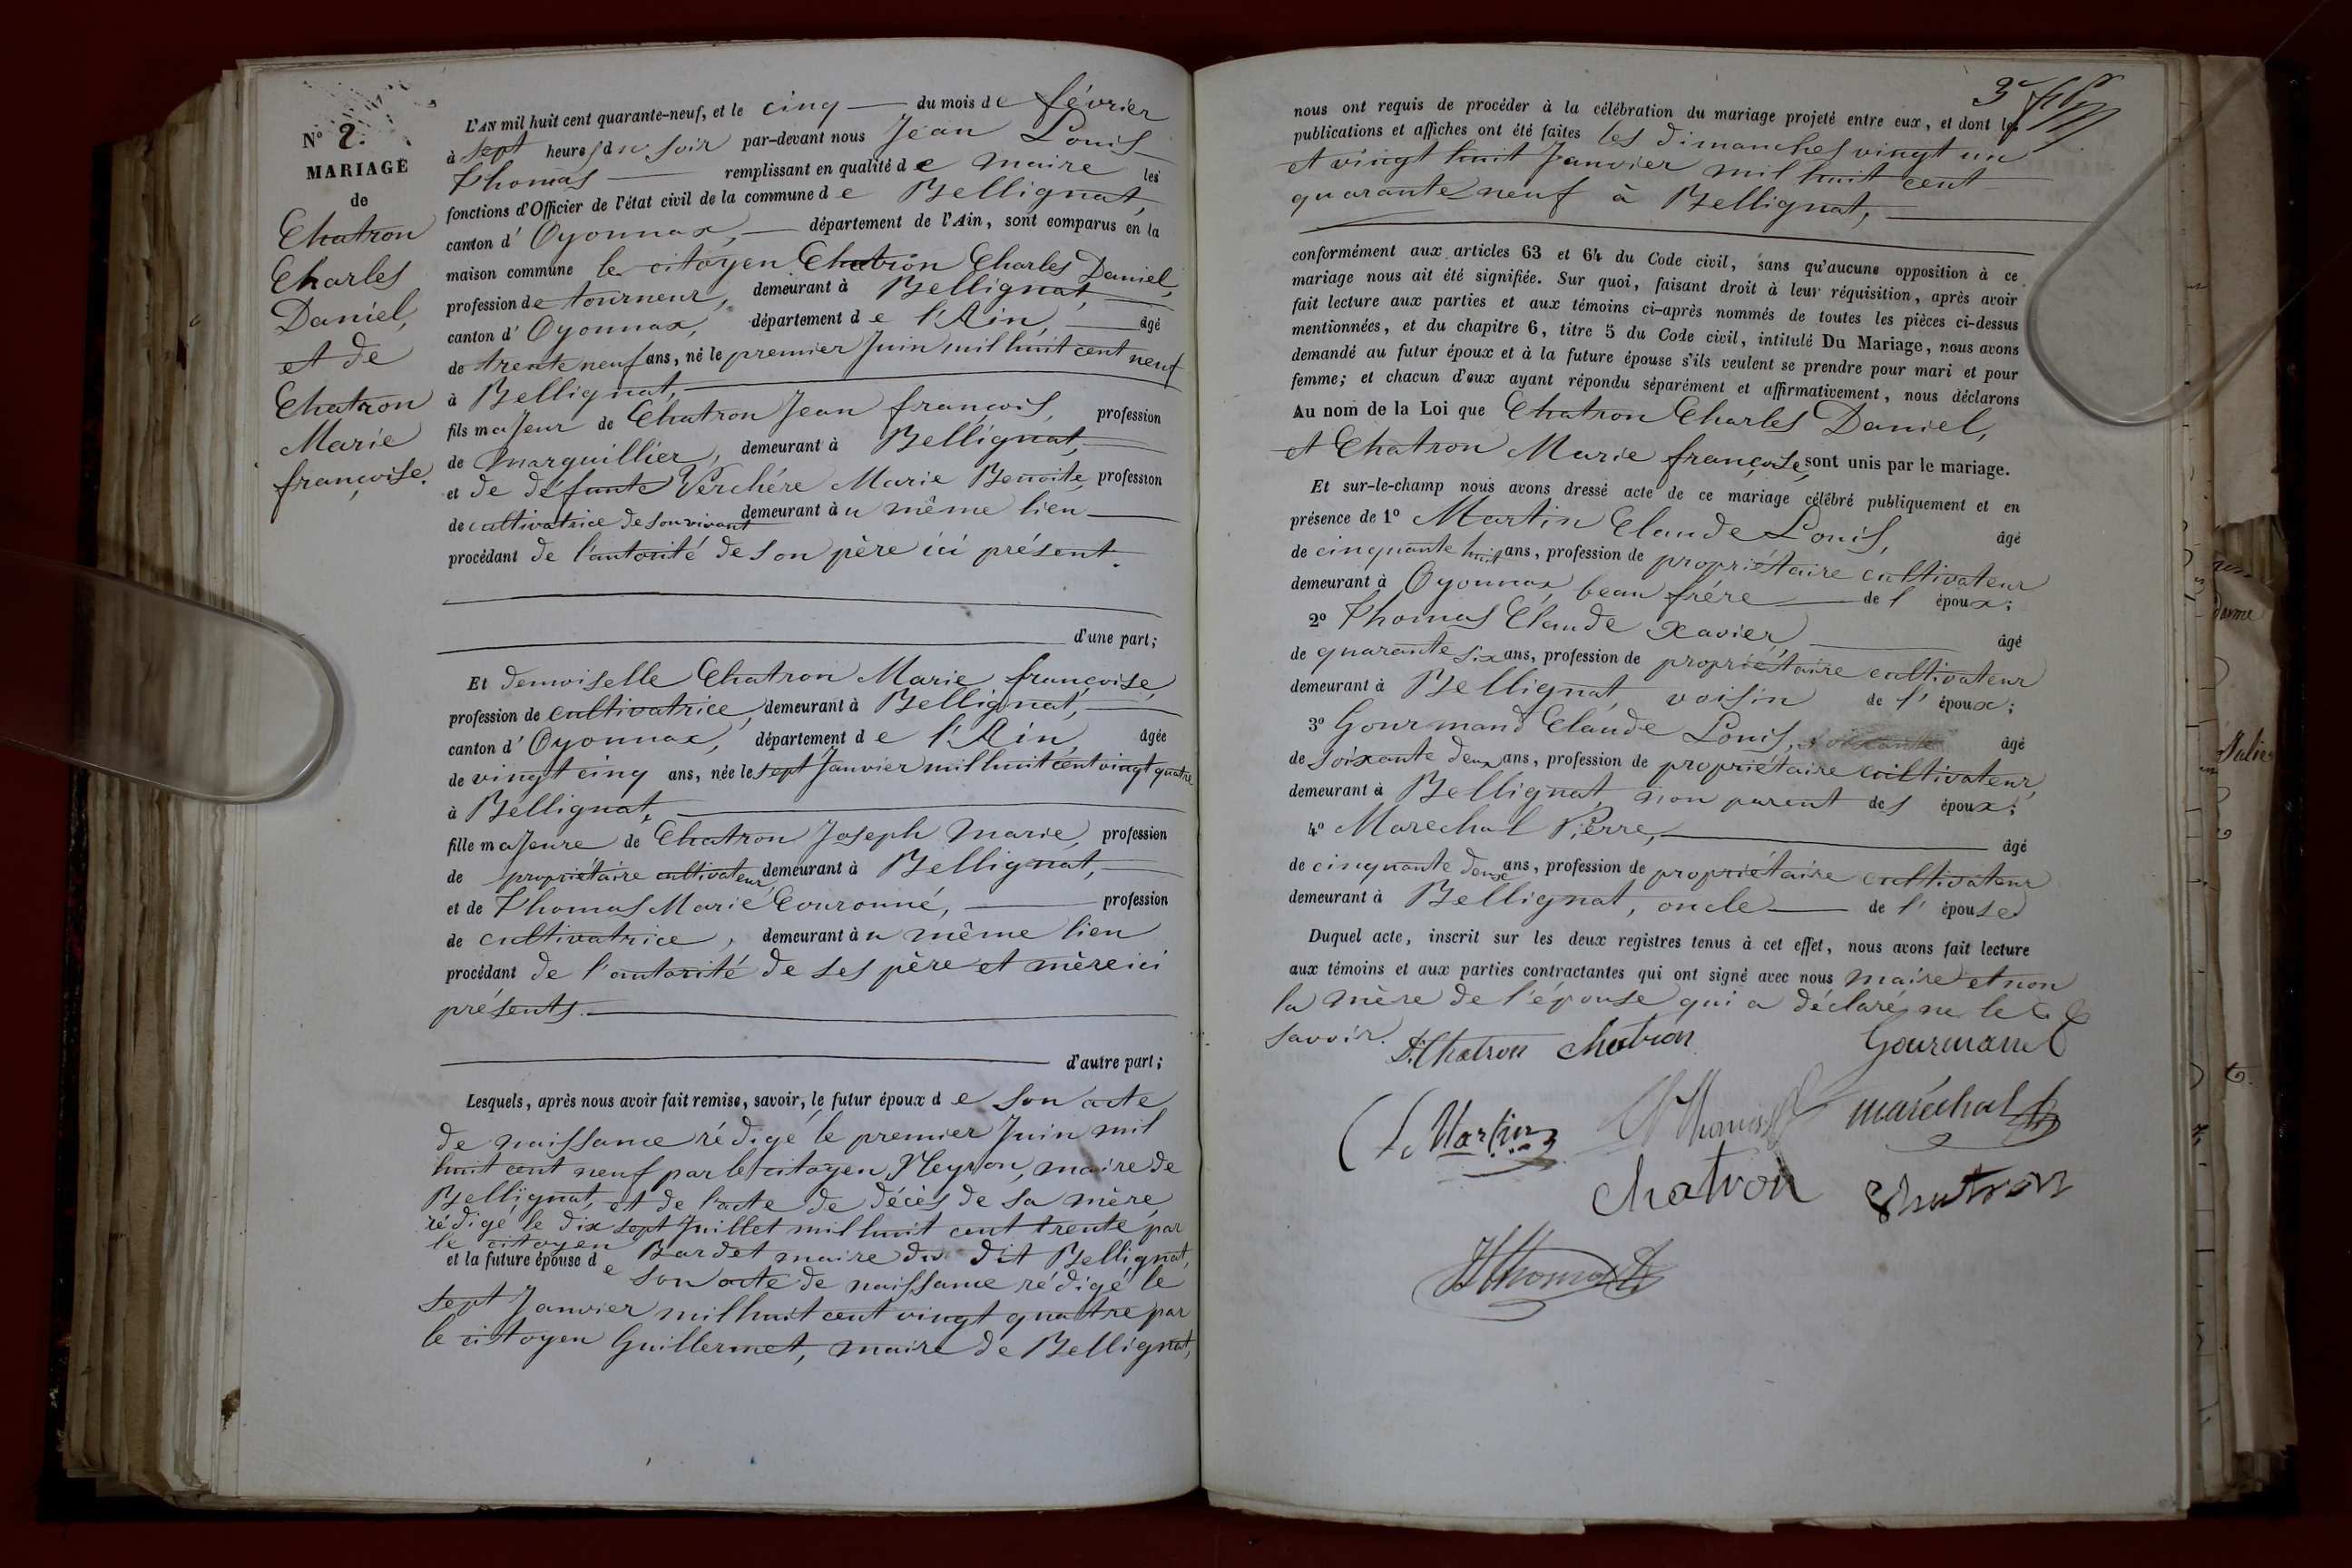 N° 2.
MARIAGE
de
Chatron
Charles
Daniel,
et de
Chatron
Marie
françoise.
L'AN mil huit cent quarante-neuf, et le cinq du mois de février
à sept heures du soir par-devant nous Jean Louis
Thomas remplissant en qualité de maire les
fonctions d'Officier de l'état civil de la commune de Bellignat,
canton d'Oyonnax, département de l'Ain, sont comparus en la
maison commune le citoyen Chatron Charles Daniel,
profession de tourneur, demeurant à Bellignat,
canton d'Oyonnax, département de l'Ain, âgé
de trente neuf ans, né le premier Juin mil huit cent neuf
à Bellignat,
fils majeur de Chatron Jean françois, profession
de marguillier, demeurant à Bellignat,
et de défunte Verchére Marie Benoite, profession
de cultivatrice de son vivant demeurant au même lieu
procédant de l'autorité de son père ici présent.
d'une part;
Et demoiselle Chatron Marie françoise,
profession de cultivatrice, demeurant à Bellignat,
canton d'Oyonnax, département de l'Ain, âgée
de vingt cinq ans, née le sept Janvier mil huit cent vingt quatre
à Bellignat,
fille majeure de Chatron Joseph Marie, profession
de propriétaire cultivateur, demeurant à Bellignat,
et de Thomas Marie Couronné, profession
de cultivatrice, demeurant au même lieu
procédant de l'autorité de ses père et mère ici
présents.
d'autre part;
Lesquels, après nous avoir fait remise, savoir, le futur époux de son acte
de naissance rédigé le premier Juin mil
huit cent neuf par le citoyen Neyron, maire de
Bellignat, et de l'acte de décès de sa mère,
rédigé le dix sept Juillet mil huit cent trente, par
le citoyen Bardet maire du dit Bellignat,
et la future épouse de son acte de naissance rédigé le
sept Janvier mil huit cent vingt quatre par
le citoyen Guillermet, maire de Bellignat,
3e
nous ont requis de procéder à la célébration du mariage projeté entre eux, et dont les
publications et affiches ont été faites les dimanches vingt un
et vingt huit Janvier mil huit cent
quarante neuf à Bellignat,
conformément aux articles 63 et 64 du Code civil, sans qu'aucune opposition à ce
mariage nous ait été signifiée. Sur quoi, faisant droit à leur réquisition, après avoir
fait lecture aux parties et aux témoins ci-après nommés de toutes les pièces ci-dessus
mentionnées, et du chapitre 6, titre 5 du Code civil, intitulé Du Mariage, nous avons
demandé au futur époux et à la future épouse s'ils veulent se prendre pour mari et pour
femme; et chacun d'eux ayant répondu séparément et affirmativement, nous déclarons
Au nom de la Loi que Chatron Charles Daniel,
et Chatron Marie françoise, sont unis par le mariage.
Et sur-le-champ nous avons dressé acte de ce mariage célébré publiquement et en
présence de 1° Martin Claude Louis, âgé
de cinquante huit ans, profession de propriétaire cultivateur
demeurant à Oyonnax, beau frére de l'époux;
2° Thomas Claude Xavier, âgé
de quarante six ans, profession de propriétaire cultivateur
demeurant à Bellignat, voisin de l'époux;
3° Gourmand Claude Louis, âgé
de soixante deux ans, profession de propriétaire cultivateur,
demeurant à Bellignat, non parent des époux;
4° Marechal Pierre, âgé
de cinquante deux ans, profession de propriétaire cultivateur
demeurant à Bellignat, oncle de l'épouse
Duquel acte, inscrit sur les deux registres tenus à cet effet, nous avons fait lecture
aux témoins et aux parties contractantes qui ont signé avec nous maire et non
la mère de l'épouse qui a déclaré ne le
savoir.
Chatron Chatron Gourmand
Martin Thomas maréchal
Chatron Chatron
Thomas